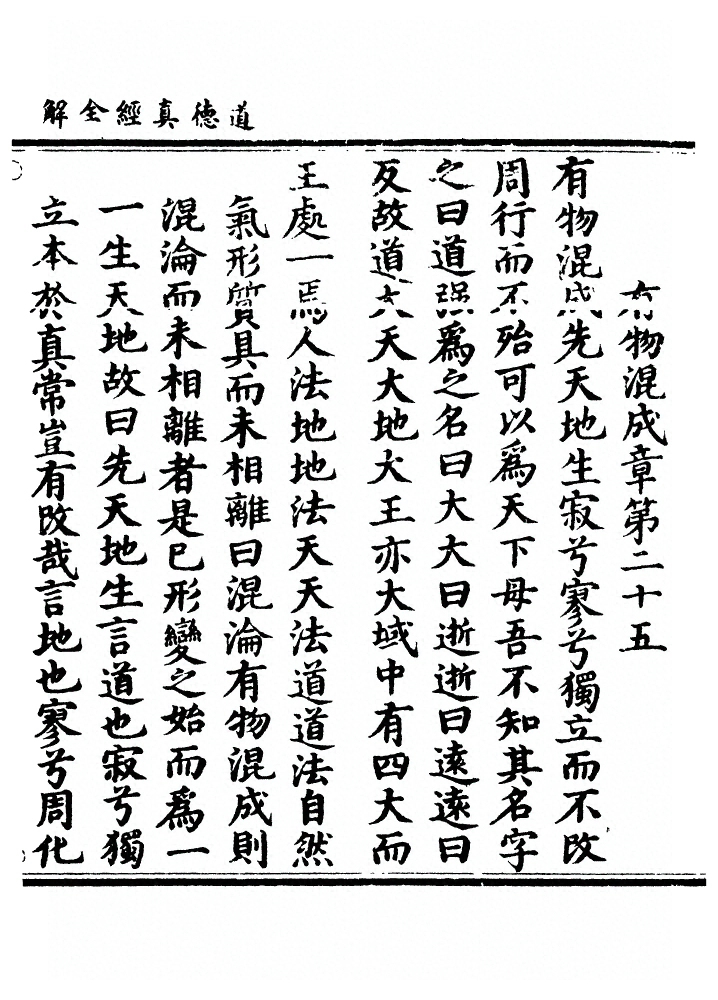 道德真經全解
有物混成章第二十五
有物混成先天地生寂兮寥兮獨立而不改
周行而不殆可以爲天下母吾不知其名字
之曰道强爲之名曰大大曰逝逝曰遠遠曰
反故道大天大地大王亦大域中有四大而
王處一焉人法地地法天天法道道法自然
氣形質具而未相離曰混淪有物混成則
混淪而未相離者是巳形變之始而爲一
一生天地故曰先天地生言道也寂兮獨
立本於真常豈有改哉言地也寥兮周化